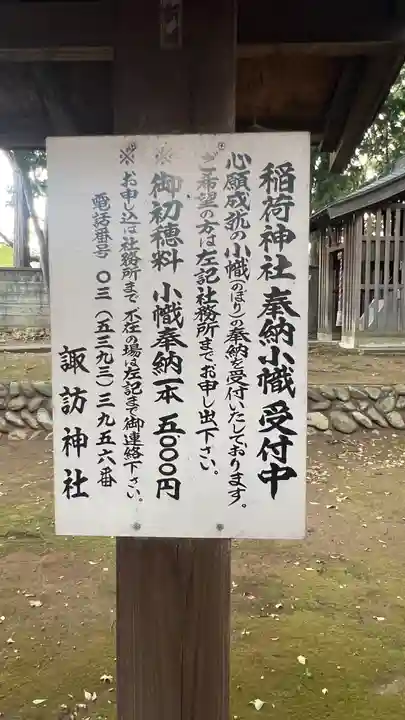 稲荷神社 奉納小幟 受付中
心願成就の小幟(のぼり)の奉納を受付いたしております。
ご希望の方は左記社務所までお申し出下さい。
※御初穂料 小幟奉納一本 五.〇〇〇円
※お申し込は社務所まで 不在の場は左記まで御連絡下さい。
電話番号 〇三(五三九三)三九五六番
諏訪神社